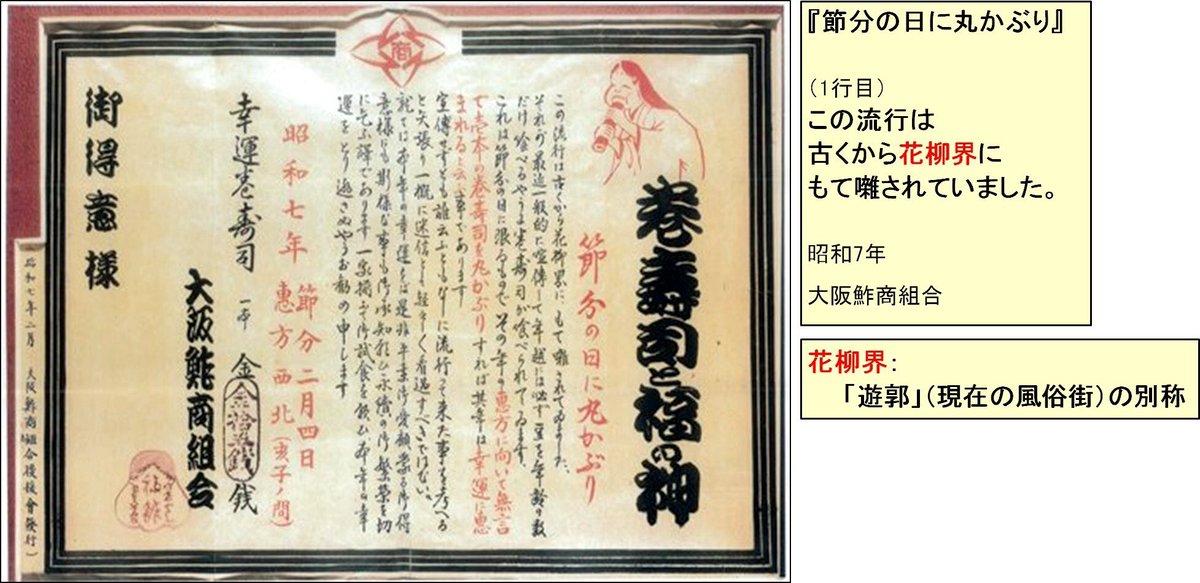 巻壽司と福の神
節分の日に丸かぶり
この流行は古くから花柳界にもて囃されてゐました。
それが最近一般的に宣傳して年越には必ず豆を年齢の数
だけ喰べるやうに巻壽司が喰べられてゐます。
これは節分の日に限るものでその年の恵方に向いて無言
で壱本の巻壽司を丸かぶりすれば其年は幸運に恵
まれると云ふ事であります
宣傳せずとも誰云ふともなしに流行って来た事を考へる
と矢張り一概に迷信とも軽々しく看過すべきではない。
就ては本年の幸運をば是非平素御愛顧蒙る御得
意様にも此様な事も御承知願ひ永續の御繁栄を切
に乞ふ譯であります 一家揃って御試食を願ひ本年の幸
運をとり逃さぬやうお勧め申します
昭和七年 節分二月四日
恵方 西北(亥子ノ間)
幸運巻壽司 一本 金 金拾五銭 銭
大阪鮓商組合
御得意様
昭和七年二月 大阪鮓商組合後援會發行)
商
『節分の日に丸かぶり』
(1行目)
この流行は
古くから花柳界に
もて囃されていました。
昭和7年
大阪鮓商組合
花柳界:
「遊郭」(現在の風俗街)の別称